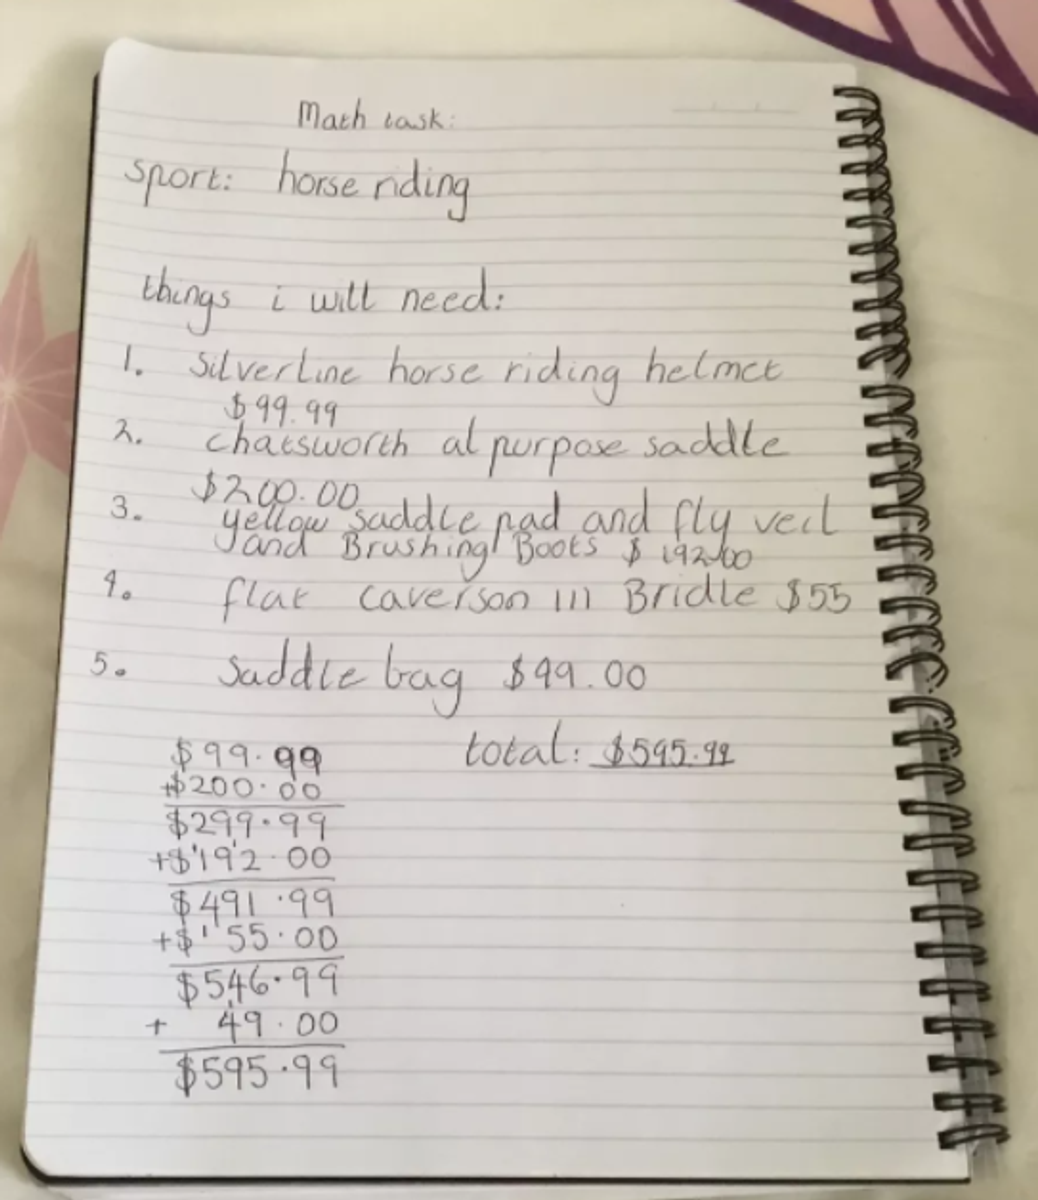 Math task:
sport: horse riding
things i will need:
1. Silverline horse riding helmet
$99.99
2. chatsworth al purpose saddle
$200.00
3. yellow saddle pad and fly veil
and Brushing Boots $192.00
4. flat caverson 111 Bridle $55
5. Saddle bag $49.00
total: $595.99
$99.99
+$200.00
$299.99
+$192.00
$491.99
+$55.00
$546.99
+ 49.00
$595.99